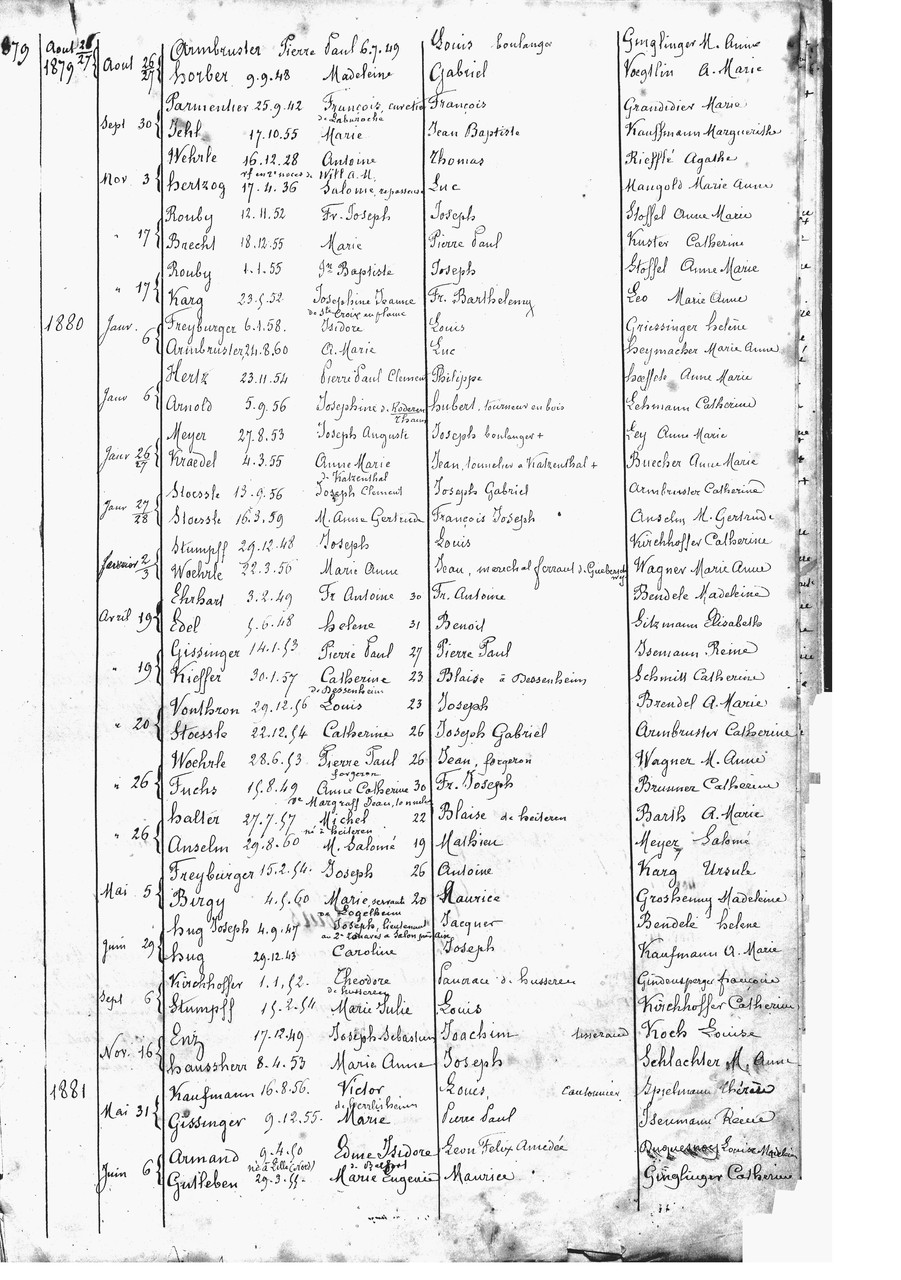 879 Aout 26/27 Armbruster Pierre Paul 6.7.49 Louis boulanger Ginglinger M. Anne
1879 Aout 26/27 horber 9.9.48 Madeleine Gabriel Voegtlin A. Marie
Parmentier 25.9.42 François, François Grandidier Marie
de Labaroche
Sept 30 Jehl 17.10.55 Marie Jean Baptiste Kauffmann Marguerithe
Wehrle 16.12.28 Antoine Thomas Riefflé Agathe
vf en 2e noces de Will A.M.
Nov 3 hertzog 17.4.36 Salomé, repasseuse Luc Mangold Marie Anne
Rouby 12.11.52 Fr. Joseph Joseph Stoffel Anne Marie
" 17 Brecht 18.12.55 Marie Pierre Paul Kuster Catherine
Rouby 1.1.55 Jn Baptiste Joseph Stoffel Anne Marie
" 17 Karg 23.5.52 Josephine Jeanne Fr. Barthelemy Leo Marie Anne
de Ste Croix en plaine
1880 Janv. 6 Freyburger 6.1.58. Isidore Louis Griessinger helène
Armbruster 24.8.60 A. Marie Luc heymacher Marie Anne
Hertz 23.11.54 Pierre Paul Clement Philippe Anne Marie
Janv 6 Arnold 5.9.56 Josephine de Roderen hubert, tourneur en bois Lehmann Catherine
Thann
Meyer 27.8.53 Joseph Auguste Joseph boulanger + Ley Anne Marie
Janv 26/27 Kraedel 4.3.55 Anne Marie Jean, tonnelier a Katzenthal + Buecher Anne Marie
de Katzenthal
Stoessle 13.9.56 Joseph Clement Joseph Gabriel Armbruster Catherine
Janv 27/28 Stoessle 16.3.59 M. Anne Gertrude François Joseph Anselm M. Gertrude
Stumpff 29.12.48 Joseph Louis Kirchhoffer Catherine
fevrier 2/3 Woehrle 22.3.56 Marie Anne Jean, marechal ferrant de Wagner Marie Anne
Ehrhart 3.2.49 Fr Antoine 30 Fr. Antoine Bendele Madeleine
Avril 19 Edel 5.6.48 helene 31 Benoit Sitzmann Elisabeth
Gissinger 14.1.53 Pierre Paul 27 Pierre Paul Isemann Reine
" 19 Kieffer 30.1.57 Catherine 23 Blaise à Dessenheim Schmitt Catherine
de Dessenheim
Vonthron 29.12.56 Louis 23 Joseph Brendel A. Marie
" 20 Stoessle 22.12.54 Catherine 26 Joseph Gabriel Armbruster Catherine
Woehrle 28.6.53 Pierre Paul 26 Jean, forgeron Wagner M. Anne
forgeron
" 26 Fuchs 15.8.49 Anne Catherine 30 Fr. Joseph Brunner Catherine
ve Margraff Jean, tonnelier
halter 27.7.57 Michel 22 Blaise de heiteren Barth A. Marie
né à heiteren
" 26 Anselm 29.8.60 M. Salomé 19 Mathieu Meyer Salomé
Freyburger 15.2.54. Joseph 26 Antoine Karg Ursule
Mai 5 Birgy 4.5.60 Marie, servante 20 Maurice Groshenny Madeleine
de Logelheim
hug Joseph 4.9.47 Joseph, lieutenant Jacques Bendele helene
au 2e Zouaves a Salon
Juin 29 hug 29.12.43 Caroline Joseph Kaufmann A. Marie
Kirchhoffer 1.1.52. Theodore Pancrace de husseren Gindensperger françoise
de husseren
Sept 6 Stumpff 15.2.54 Marie Julie Louis Kirchhoffer Catherine
Enz 17.12.49 Joseph Sebastien Joachim tisserand Koch Louise
Nov. 16 haussherr 8.4.53 Marie Anne Joseph Schlachter M. Anne
1881 Kaufmann 16.8.56. Victor Louis, Cantonnier Spielmann thérèse
de herrlisheim
Mai 31 Gissinger 9.12.55. Marie Pierre Paul Isenmann Reine
Armand 9.4.50 Edme Isidore Leon Felix Amedée Duquesnoy Louise
né à Lille (Nord) de Belfort
Juin 6 Gutleben 29.3.55. Marie Eugenie Maurice Ginglinger Catherine